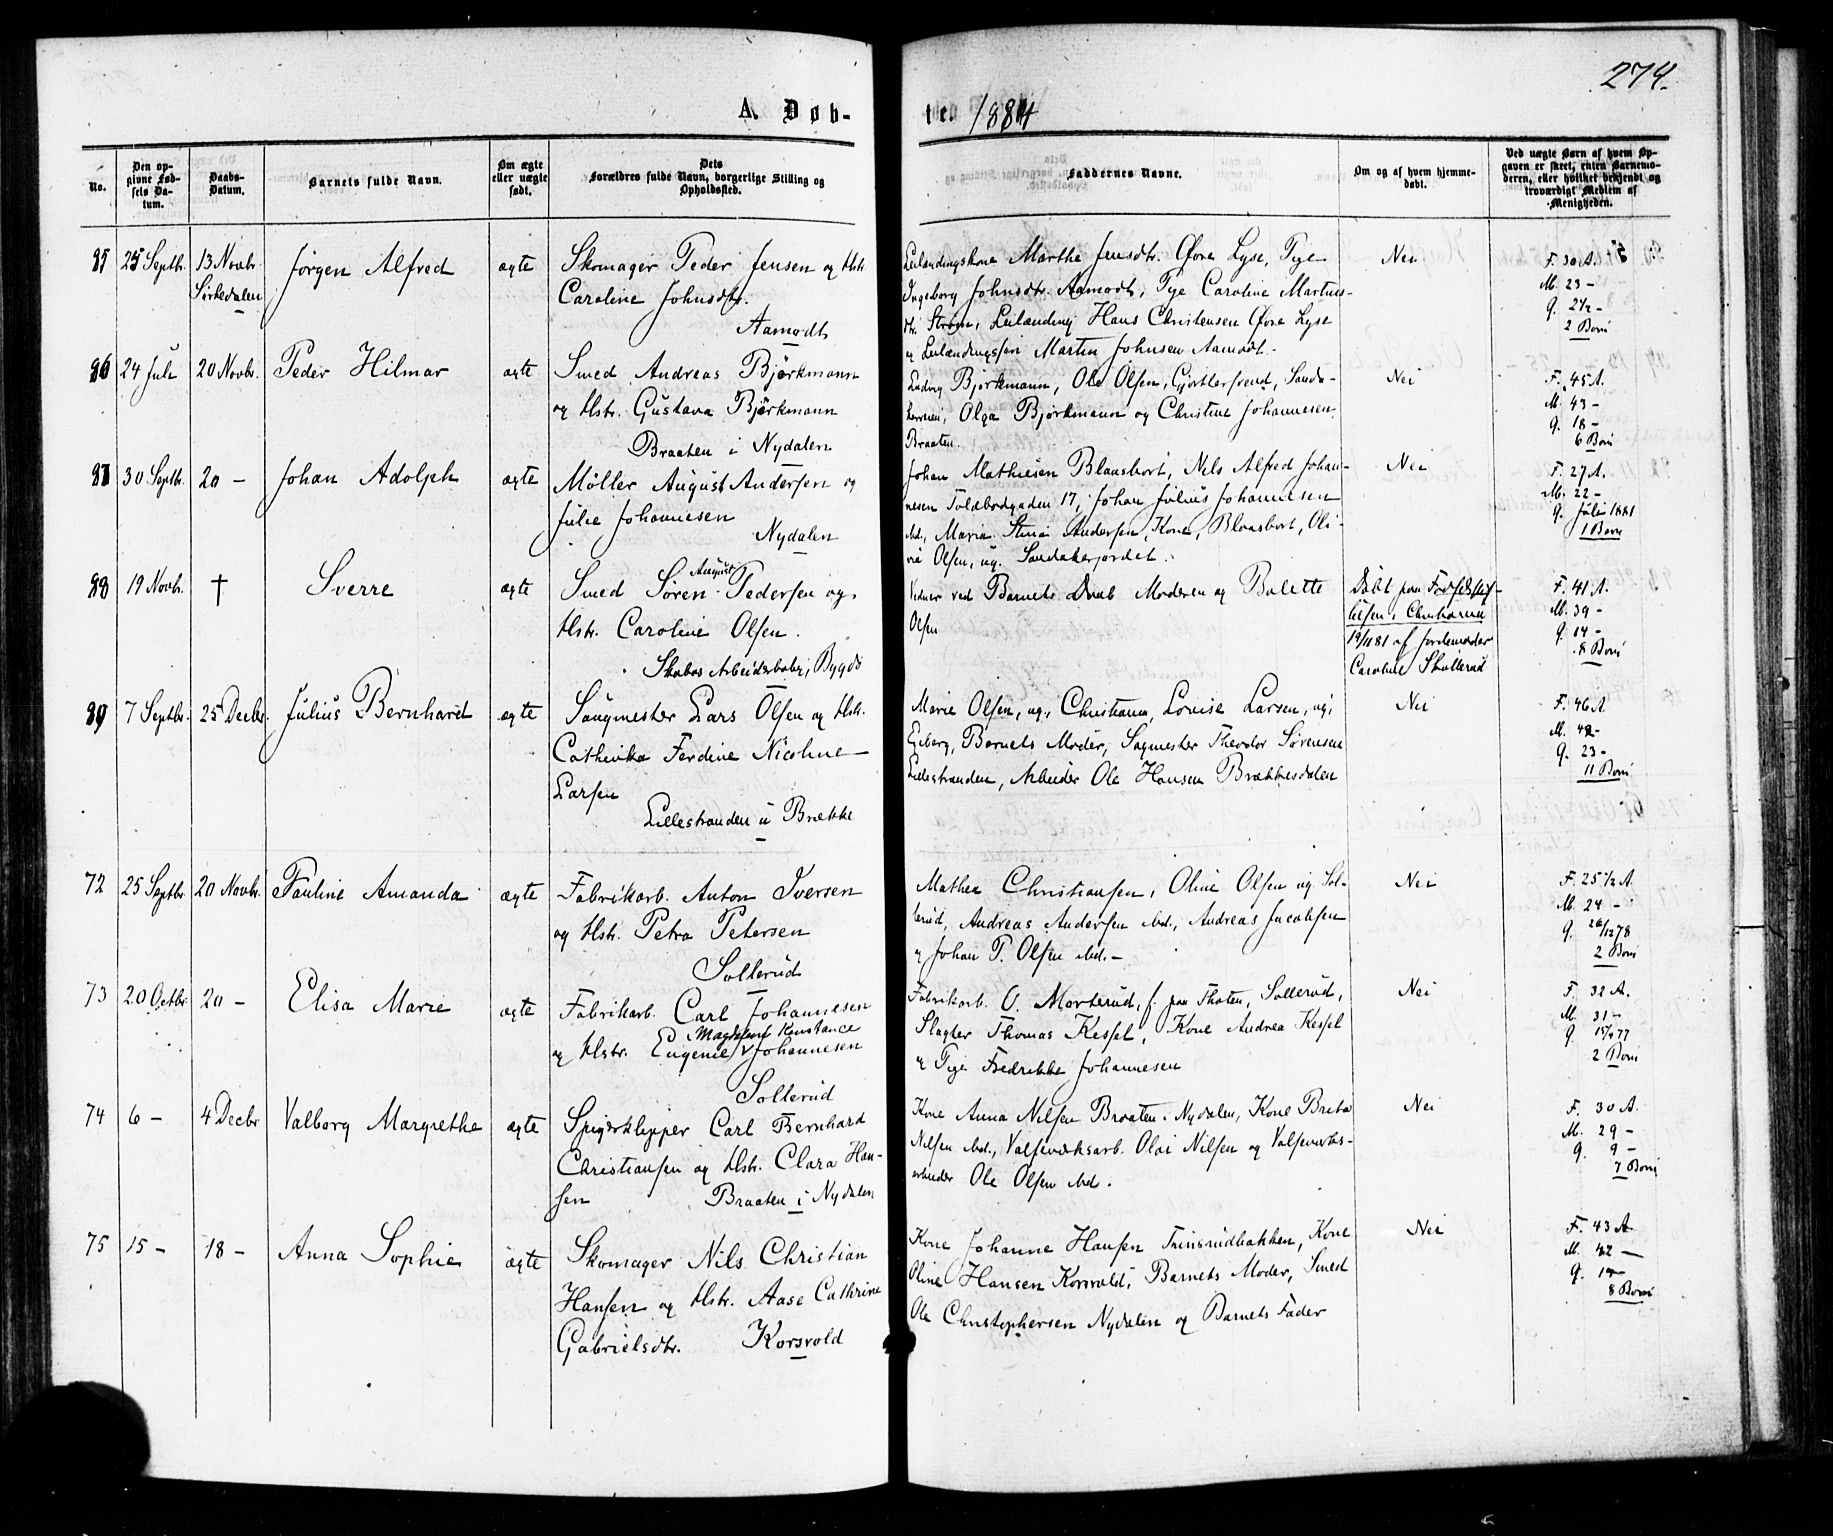 274.
A. Døb-
te. 1881
No.
Den op-
givne Fød-
sels Da-
tum.
Daabs-
Datum.
Barnets fulde Navn.
Om ægte
eller uægte
født.
Dets
Forældres fulde Navn, borgerlige Stilling og
Opholdssted.
Faddernes Navne.
Om og af hvem hjemme-
døbt.
Ved uægte Børn af hvem Op-
gaven er skeet, enten Barnemo-
deren, eller hvilket bekjendt og
troværdigt Medlem af
Menigheden.
85 25 Septbr. 13 Novbr. Sørkedalen
Jørgen Alfred
ægte
Skomager Peder Jensen og Hstr.
Caroline Johnsdtr.
Aamodt
Leilændingskone Marthe Jensdtr. Øvre Lyse, Pige
Ingeborg Johnsdtr. Aamodt, Pige Caroline Martins-
dtr. Strøm, Leilænding Hans Christensen Øvre Lyse
og Leilændingssøn Martin Johnsen Aamodt.
Nei
F. 30 A.
M. 23 -
g. 2½ -
2 Børn
86 24 Juli 20 Novbr.
Peder Hilmar
ægte
Smed Andreas Bjørkmann
og Hstr. Gustava Bjørkmann
Braaten i Nydalen
Ludvig Bjørkmann, Ole Olsen, Gjørtlersvend, Sanda-
kerveien, Olga Bjørkmann og Christine Johannesen,
Braaten.
Nei
F. 45 A.
M. 43 -
g. 18 -
6 Børn
87 30 Septbr. 20 -
Johan Adolph
ægte
Møller August Andersen og
Julie Johannesen
Nydalen
Johan Mathiesen Blaasbort, Nils Alfred Johan-
nesen Toldbodgaden 17, Johan Julius Johannesen
ibd., Maria Stina Andersen, Kone, Blaasbort, Oli-
via Olsen, ug. Sandakerjordet.
Nei
F. 27 A.
M. 22 -
g. Juli 1881
1 Barn
88 19 Novbr. †
Sverre
ægte
August
Smed Søren Pedersen og
Hstr. Caroline Olsen.
Skabos Arbeiderbolig, Bygdø
Vidner ved Barnets Daab Moderen og Bolette
Olsen
Døbt paa Fødselsstif-
telsen i Christiania
19/11 81 af Jordemoder
Caroline Skollerud
F. 41 A.
M. 39 -
g. 14 -
8 Børn
89 7 Septbr. 25 Decbr.
Julius Bernhard
ægte
Saugmester Lars Olsen og Hstr.
Cathinka Ferdine Nicoline
Larsen
Lillestranden u Brække
Marie Olsen, ug., Christiania, Lovise Larsen, ug.,
Egeberg, Barnets Moder, Sagmester Theodor Sørensen
Lillestranden, Arbeider Ole Hansen Brækkesdalen
Nei
F. 46 A
M. 42 -
g. 23 -
11 Børn
72 25 Septbr. 20 Novbr.
Pauline Amanda
ægte
Fabrikarb. Anton Iversen
og Hstr. Petra Petersen
Sollerud
Mathea Christiansen, Oline Olsen ug. Sol-
lerud, Andreas Andersen ibd., Andreas Jacobsen
og Johan P. Olsen ibd. -
Nei
F. 25 1/2 A.
M. 24 -
g. 26/12 78
2 Børn
73 20 Octbr. 20 -
Elisa Marie
ægte
Fabrikarb. Carl Johannesen
Magdalene Konstance
og Hstr. Eugenie Johannesen
Sollerud
Fabrikarb. O. Morterud, f. paa Thoten, Sollerud,
Slagter Thomas Kessel, Kone Andrea Kessel
og Pige Fredrikke Johannesen
Nei
F. 32 A.
M. 31 -
g. 77
2 Børn
74 6 - 4 Decbr
Valborg Margrethe
ægte
Spigerklipper Carl Bernhard
Christiansen og Hstr. Clara Han-
sen Braaten i Nydalen
Kone Anna Nilsen Braaten i Nydalen, Kone Brita
Nilsen ibd., Valseværksarb. Olai Nilsen og Valseværks-
arbeider Ole Olsen ibd.
Nei
F. 30 A.
M. 29 -
g. 9 -
7 Børn
75 15 - 18 -
Anna Sophie
ægte
Skomager Nils Christian
Hansen og Hstr. Aase Cathrine
Gabrielsdtr. Korsvold
Kone Johanne Hansen Frinsrudbakken, Kone
Oline Hansen Korsvold, Barnets Moder, Smed
Ole Christophersen Nydalen og Barnets Fader
Nei
F. 43 A.
M. 42 -
g.
8 Børn